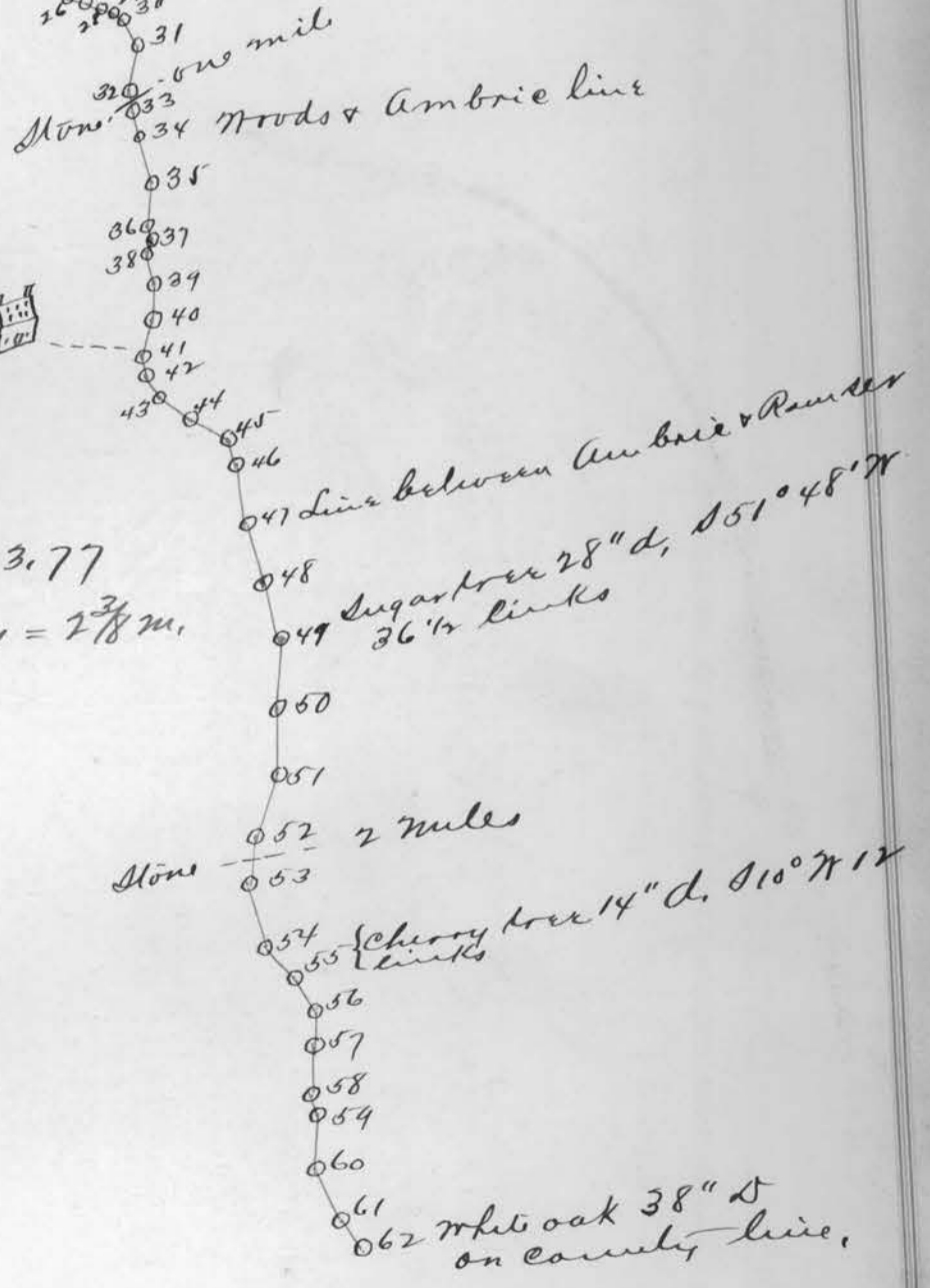 26
28
30
31
one mil
32
33
Stone
34 Woods & Ambrie line
35
36
37
38
39
40
41
42
43
44
45
46
47 Line between Ambrie & Ramser
48
3.77
49 Sugar tree 28" d, S 51° 48' W
36 1/2 links
= 2 3/8 m.
50
51
52
2 miles
Stone
53
54
55 { Cherry tree 14" d. S 10° W 12
links
56
57
58
59
60
61
62 White oak 38" D
on county line.